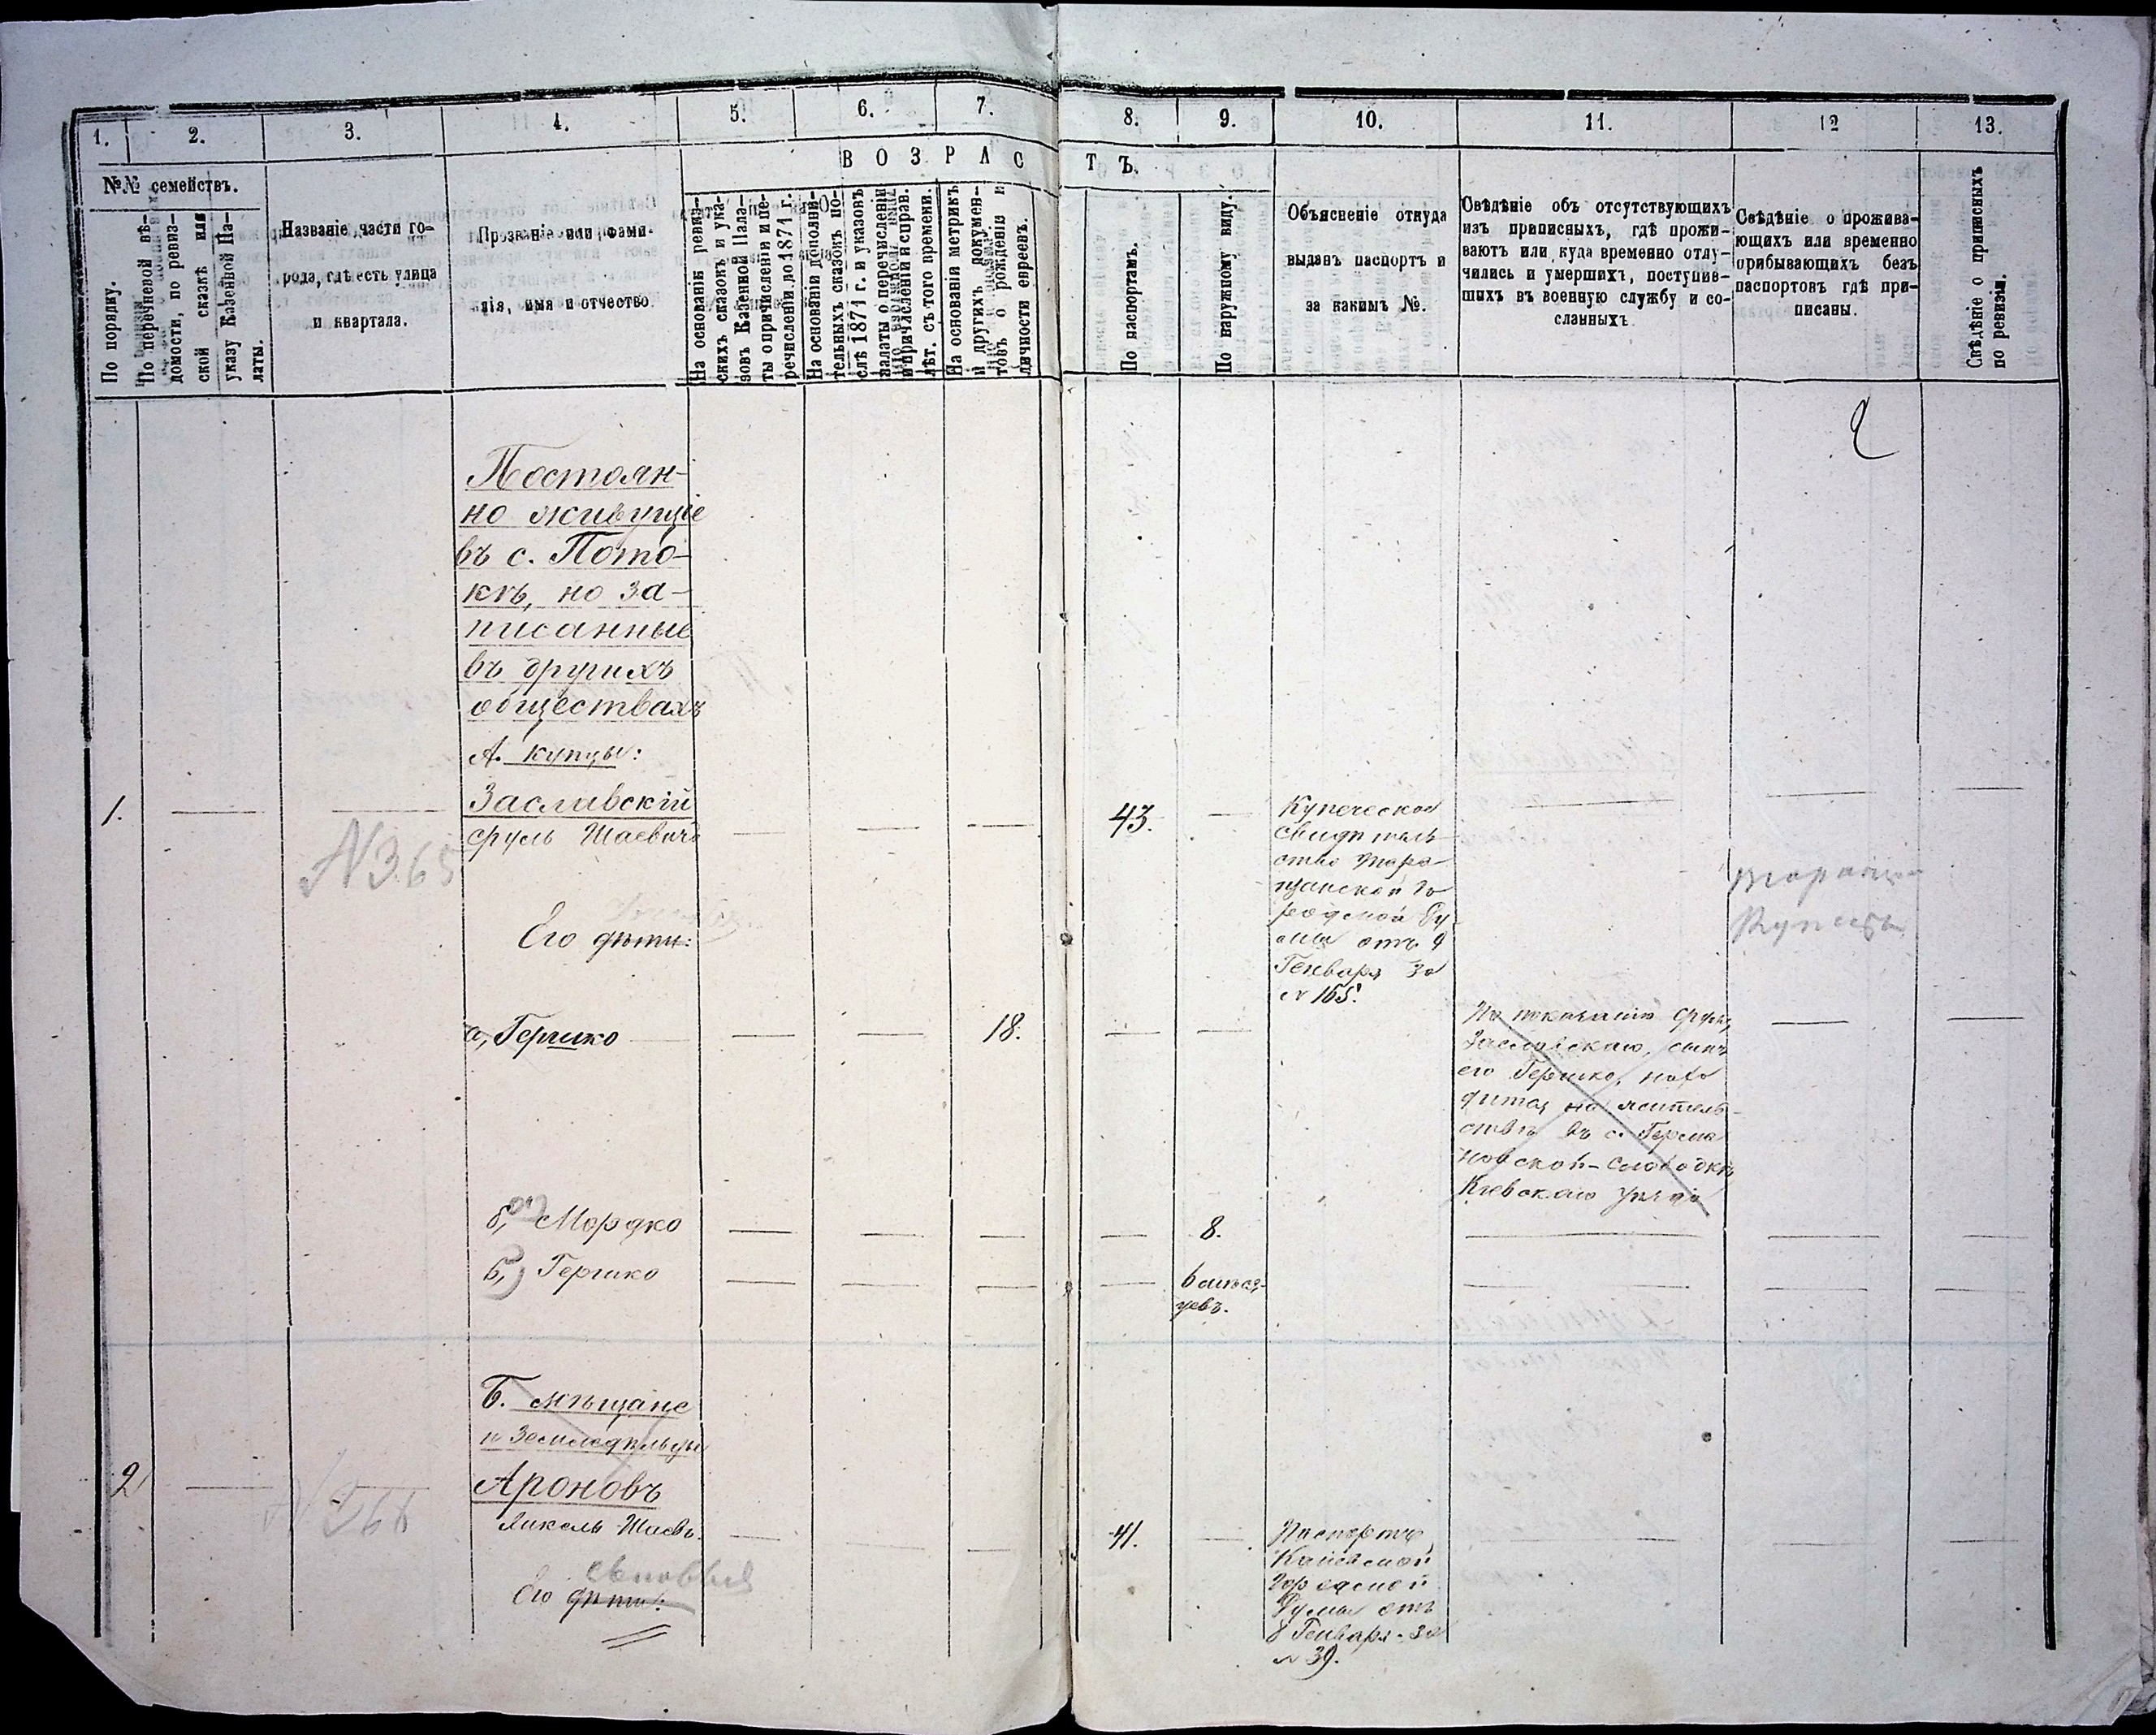 1. 2. 3. 4. 5. 6. 7. 8. 9. 10. 11. 12 13.
ВОЗРАСТЪ.
№№ семействъ.
По порядку.
По перечневой вѣ-
домости, по ревиз-
ской сказкѣ или
указу Казенной Па-
латы.
Названіе части го-
рода, гдѣ есть улица
и квартала.
Прозваніе или фами-
лія, имя и отчество
На основаніи ревиз-
скихъ сказокъ и ука-
зовъ Казенной Пала-
ты о причисленіи и пе-
речисленіи до 1871 г.
На основаніи дополни-
тельныхъ сказокъ по-
слѣ 1871 г. и указовъ
палаты о перечисленіи
и причисленіи и справ.
лѣт. съ того времени.
На основаніи метрикъ
и другихъ докумен-
товъ о рожденіи и
личности евреевъ.
По паспортамъ.
По наружному виду.
Объясненіе откуда
выданъ паспортъ и
за какимъ №.
Свѣдѣніе объ отсутствующихъ
изъ приписныхъ, гдѣ прожи-
ваютъ или куда временно отлу-
чились и умершихъ, поступив-
шихъ въ военную службу и со-
сланныхъ
Свѣдѣніе о прожива-
ющихъ или временно
прибывающихъ безъ
паспортовъ гдѣ при-
писаны.
Свѣдѣніе о приписныхъ
по ревизіи.
2
Постоян-
но живущіе
въ с. Пото-
кѣ, но за-
писанные
въ другихъ
обществахъ
А. купцы:
1.
Заславскій
Сруль Шаевичъ
43.
N 365
Купеческое
свидѣтель
ство Тара-
щанской Го
родской Ду
мы отъ 9
Генваря за
N 165.
Его дѣти:
а, Гершко
18.
По показанію Сруля
Заславскаго, сынъ
его Гершко, нахо
дится на житель-
ствѣ въ с. Герма
новской-Слободкѣ
Кіевскаго уѣзда
б, а) Мордко
8.
б,) Гершко
6 мѣся-
цевъ.
Б. мѣщане
и Земледѣльцы
2
Ароновъ
Янкель Шаевъ.
41.
Паспортъ
Каневской
Городской
Думы отъ
8 Генваря за
N 39.
сыновья
Его дѣти: